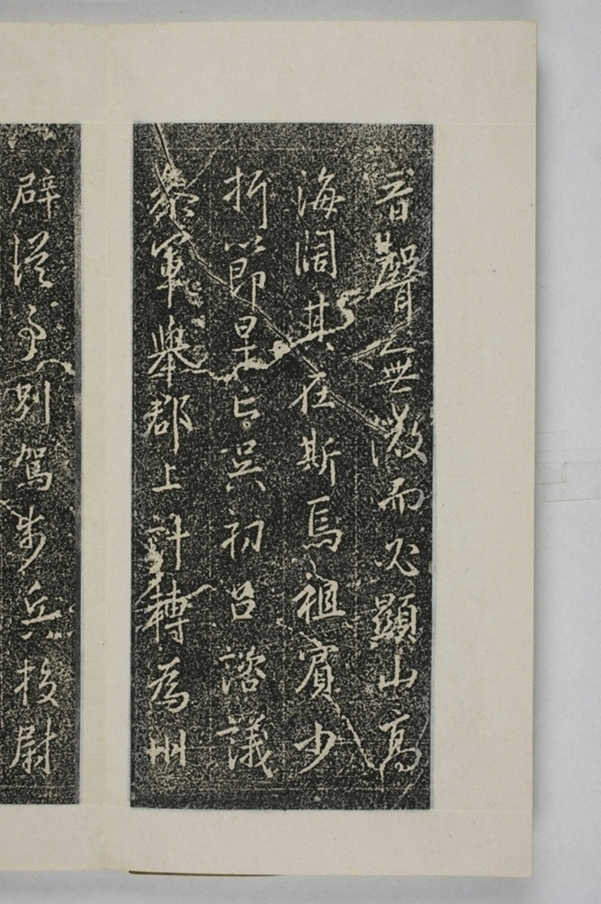 音聲無微而必顯山高
海闊其在斯焉祖賓少
折節早亡吳初召諮議
參軍舉郡上計轉為州
辟從事別駕步兵校尉